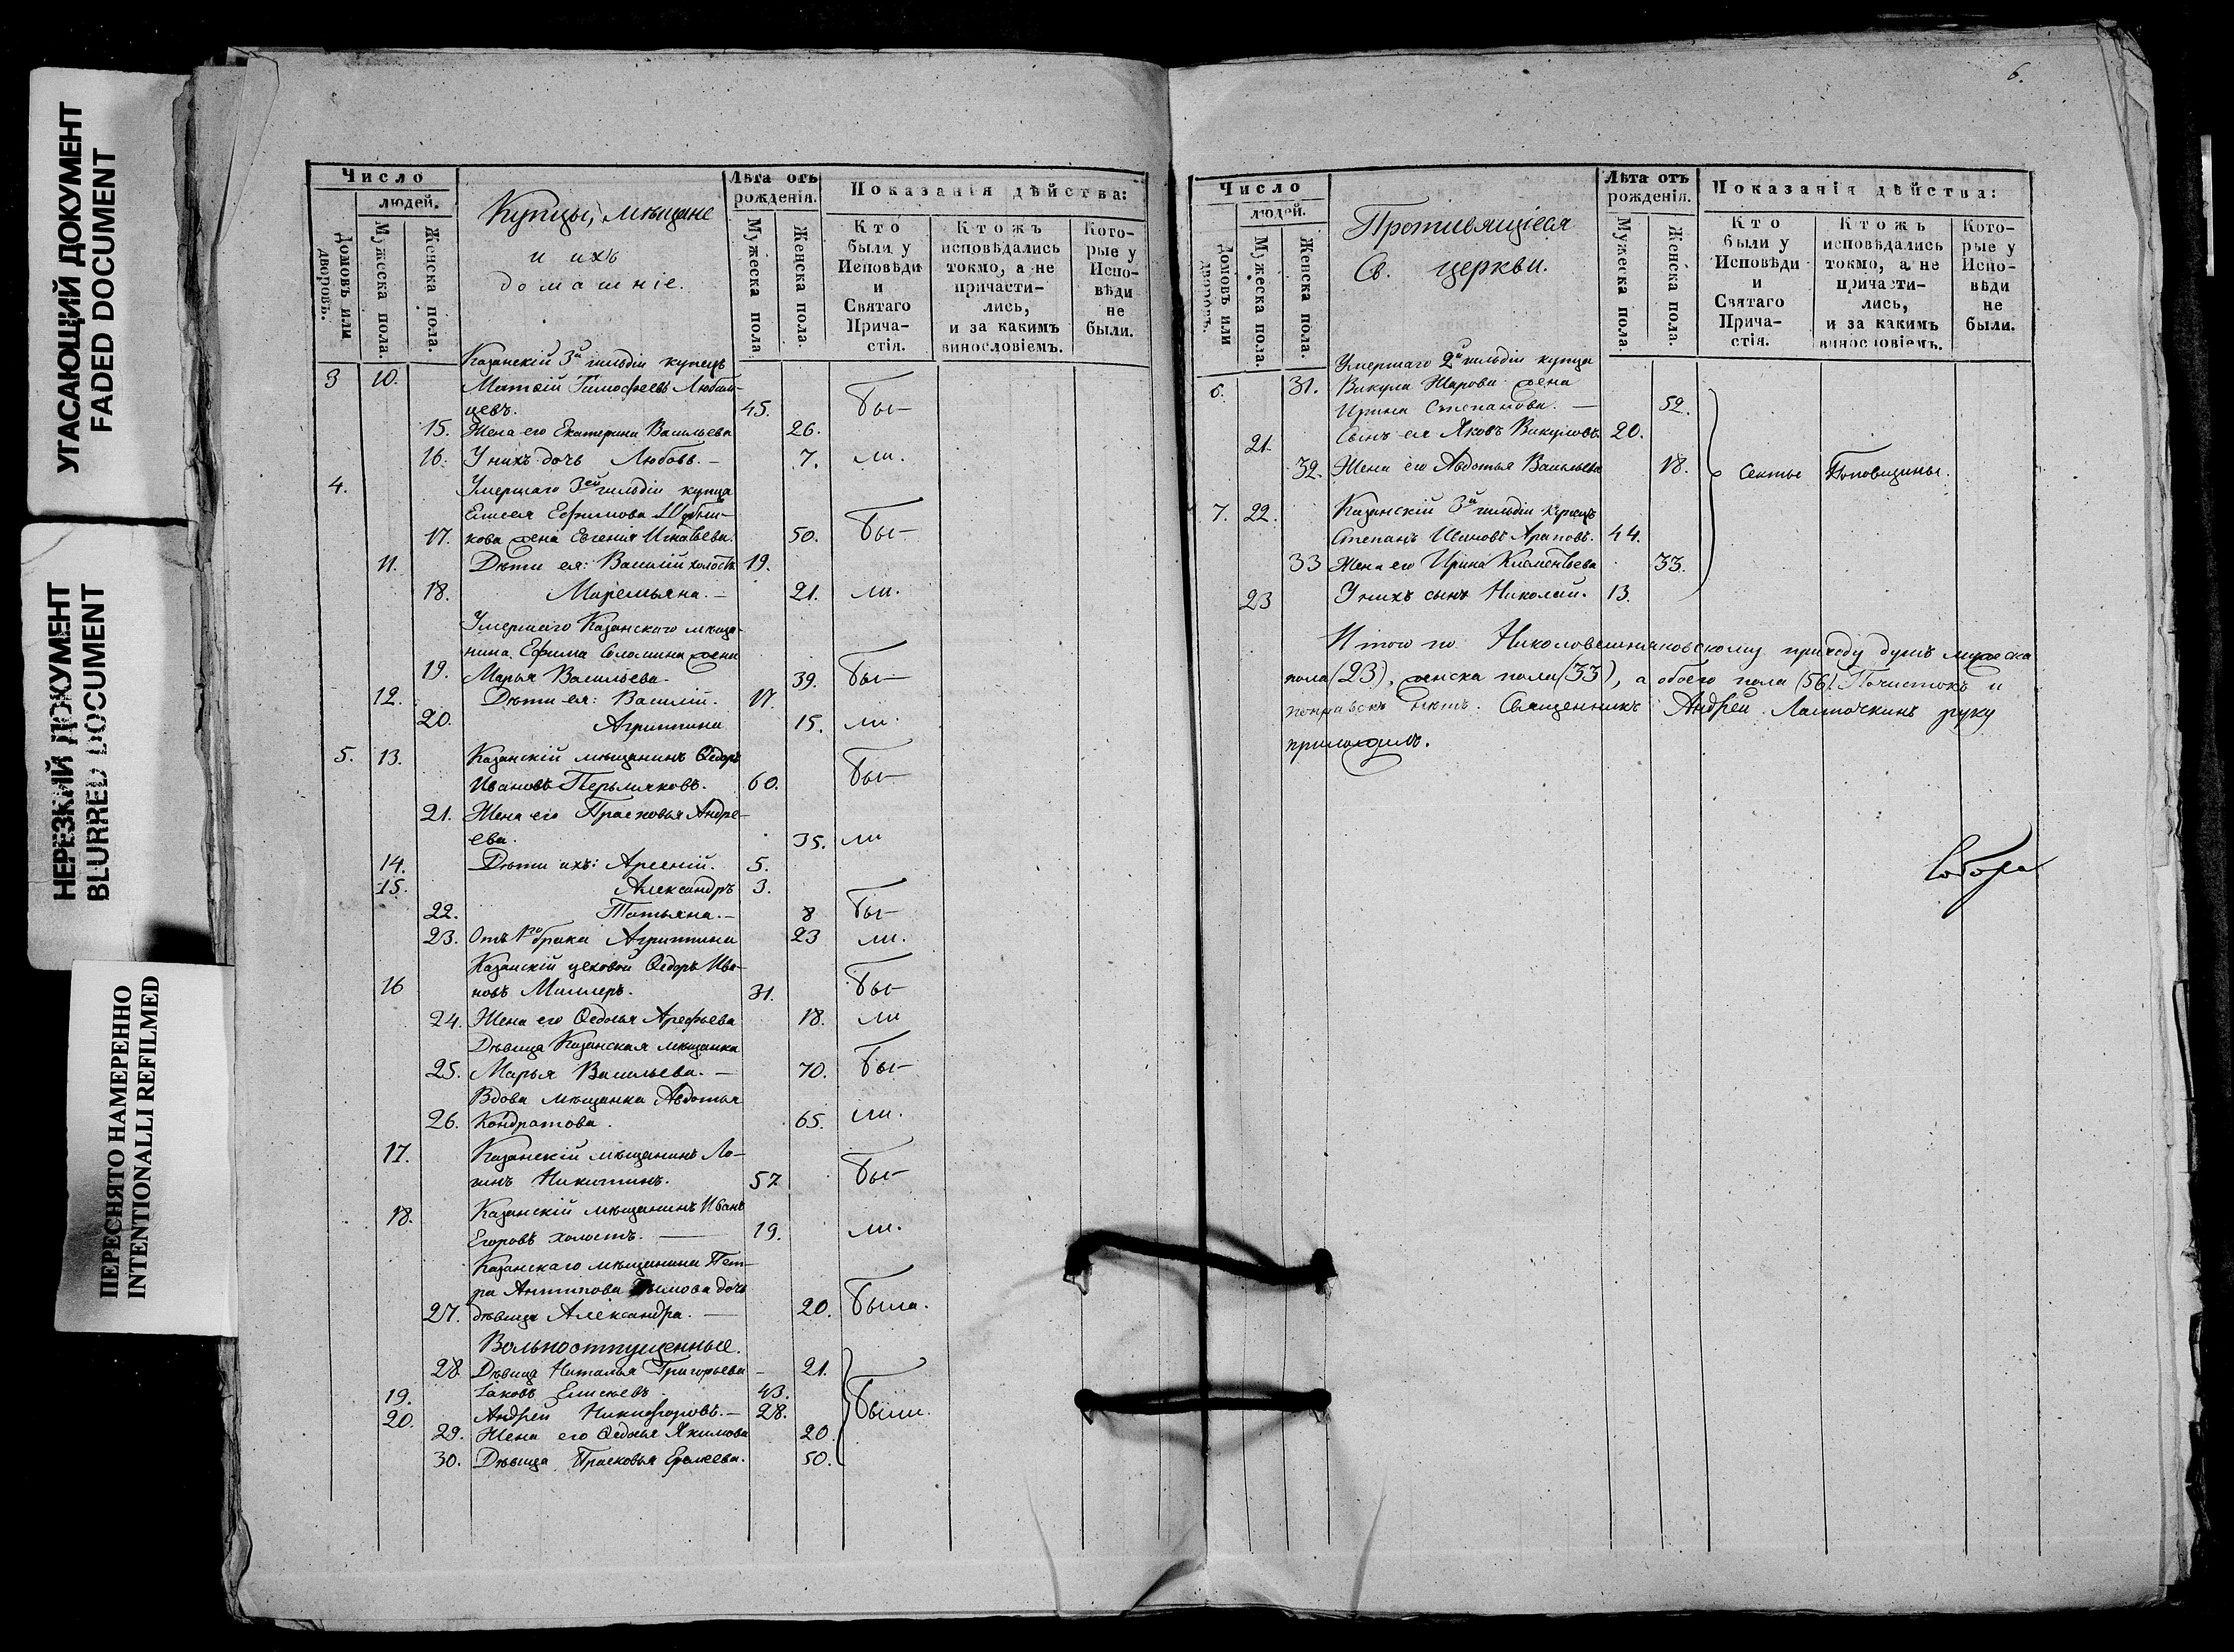 УГАСАЮЩИЙ ДОКУМЕНТ
FADED DOCUMENT
НЕРЕЗКИЙ ДОКУМЕНТ
BLURRED DOCUMENT
ПЕРЕСНЯТО НАМЕРЕННО
INTENTIONALLI REFILMED
Число
людей.
Домовъ или дворовъ.
Мужеска пола.
Женска пола.
Купцы, мѣщане
и ихъ
домашніе.
Лѣта отъ рожденія.
Мужеска пола
Женска пола.
Показанія дѣйства:
Кто были у Исповѣди и Святаго Прича-стія.
Ктожъ исповѣдались токмо, а не причасти-лись, и за какимъ винословіемъ.
Кото-рые у Испо-вѣди не были.
Казанскій 3й гильдіи купецъ
3 10. Матвій Тимофеевъ Любим-
цевъ. 45. Бы-
15. Жена его Екатерина Васильева 26.
16. У нихъ дочь Любовь. — 7. ли.
4. Умершаго 3ей гильдіи купца
Елисея Ефимова
17. кова жена Евгенія Игнатьева. 50. Бы-
11. Дѣти ея: Василій холостъ 19.
18. Маремьяна. — 21. ли.
Умершаго Казанскаго мѣща-
нина Ефима Соломина жена
19. Марья Васильева. 39. Бы-
12. Дѣти ея: Василій. 17.
20. Агрипина 15. ли.
5. 13. Казанскій мѣщанинъ Ѳедоръ
Ивановъ Пермяковъ. 60. Бы-
21. Жена его Прасковья Андре-
ева. 35. ли
14. Дѣти ихъ: Арсеній. 5.
15. Александръ 3.
22. Татьяна. — 8 Бы-
23. Отъ 1го брака Агрипина 23 ли.
Казанскій цеховой Ѳедоръ Ива-
16 новъ Миллеръ. 31. Бы-
24. Жена его Ѳедосья Арефьева 18. ли
Дѣвица Казанская мѣщанка
25. Марья Васильева. — 70. Бы-
Вдова мѣщанка Авдотья
26. Кондратова. 65. ли.
17. Казанскій мѣщанинъ Ло-
гинъ Никитинъ. 57 Бы-
18. Казанскій мѣщанинъ Иванъ
Егоровъ холостъ. — 19. ли.
Казанскаго мѣщанина Пет-
ра Антипова дочь
27. дѣвица Александра. — 20. Была.
Вольноотпущенные.
28. Дѣвица Наталья Григорьева — 21.
19. Іаковъ Елисѣевъ 43. Были.
20. Андрей Никифоровъ. — 28.
29. Жена его Ѳедосья Якимова 20.
30. Дѣвица Прасковья Ермеева. 50.
6.
Число
людей.
Домовъ или дворовъ.
Мужеска пола.
Женска пола.
Противящіеся
Св. церкви.
Лѣта отъ рожденія.
Мужеска пола.
Женска пола.
Показанія дѣйства:
Кто были у Исповѣди и Святаго Прича-стія.
Ктожъ исповѣдались токмо, а не причасти-лись, и за какимъ винословіемъ.
Кото-рые у Испо-вѣди не были.
Умершаго 2й гильдіи купца
6. 31. Викула Жарова жена
Ирина Степанова. — 52.
21. Сынъ ея Яковъ Викуловъ 20.
32. Жена его Авдотья Васильева 18. Секты Поповщины.
7. 22. Казанскій 3й гильдіи купецъ
Степанъ Ивановъ Араповъ. 44.
33 Жена его Ирина Климентьева 33.
23 У нихъ сынъ Николай. 13.
Итого по Николовешняковскому приходу душъ мужеска
пола (23), женска пола (33), а обоего пола (56). Почистокъ и
поправокъ нѣтъ. Священникъ Андрей руку
приложилъ.
Собора